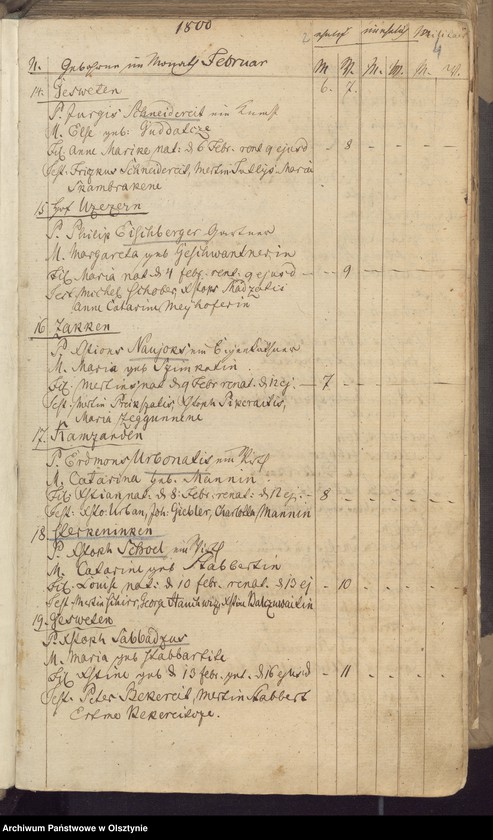 1800
ehelich unehelich
4
N. Geborne im Monath Februar M. W. M. W. M. W.
6. 7.
14. Gesweten
P. Jurgis Schneidereit ein
M. Else geb: Guddatsze
fil. Anne Marike nat: d 6 Febr. ren: 9 ejusd – 8
Test: Schneidereit, Mertin Maria
Skambrakene
15 Hof Uzezern
P. Philip Eischberger Gartner
M. Margareta geb Geschwantnerin
fil: Maria nat d 4 febr. ren: 9 ejusd – 9
Test Michel Schober, Xstops
Anne Catarina Meyhoferin
16 Zakken
P. Xstions Naujoks ein Eigenkathner
M. Maria geb Szimkatin
fil. Mertins nat d 9 Febr renat: d 12 ej. – 7
Test: Mertin Xstoph Pikeraitis,
Maria
17. Ramzanden
P. Erdmons Urbonatis ein Wirth
M. Catarina geb. Mannin
fil Xstian nat: d 8: Febr. renat: d 12 ej. – 8
Test: Xsto: Urban, Joh: Giebler, Charlotta Mannin
18
P. Xstoph Schroel ein Wirth
M. Catarine geb Stabbertin
fil. Louise nat: d 10 febr. renat. d 13 ej – 10
Test Mertin Georg Xstine
19. Gesweten
P. Xstoph Sabbadzus
M. Maria geb Stabbartite
fil Xstine geb d 13 febr. get. d 16 ejusd – 11
Test: Peter Bekereit, Mertin Stabbert
Erdme
Archiwum Państwowe w Olsztynie